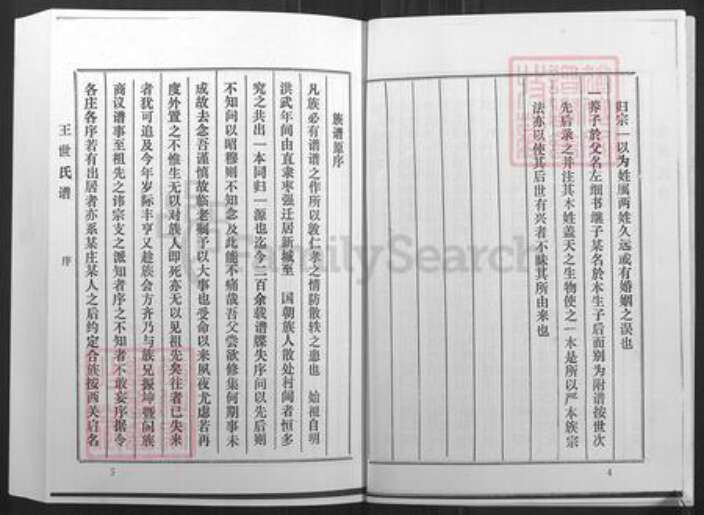 归宗一以为姓属两姓久远或有婚姻之误也
一养子於父名左细书继子某名於本生子后而别为附谱按世次
先后录之并注其本姓盖天之生物使之一本是所以严本族宗
法亦以使其后世有兴者不昧其所由来也
4
族谱原序
凡族必有谱谱之作所以敦仁孝之情防散轶之患也 始祖自明
洪武年间由直隶枣强迁居新城至 国朝族人散处村间者恒多
究之共出一本同归一源也迄今二百余载谱牒失序问以先后则
不知问以昭穆则不知念及此能不痛哉吾父尝欲修集何期事未
成故去念吾谨慎故临老嘱予以大事也受命以来夙夜尤虑若再
度外置之不惟生无以对族人即死亦无以见祖先矣往者已失来
者犹可追及今年岁际丰亨又趁族会方齐乃与族兄振坤暨阖族
商议谱事至祖先之讳宗支之派知者序之不知者不敢妄序据今
各庄各序若有出居者亦系某庄某人之后约定合族按西关启名
王世氏谱
序
5
FamilySearch